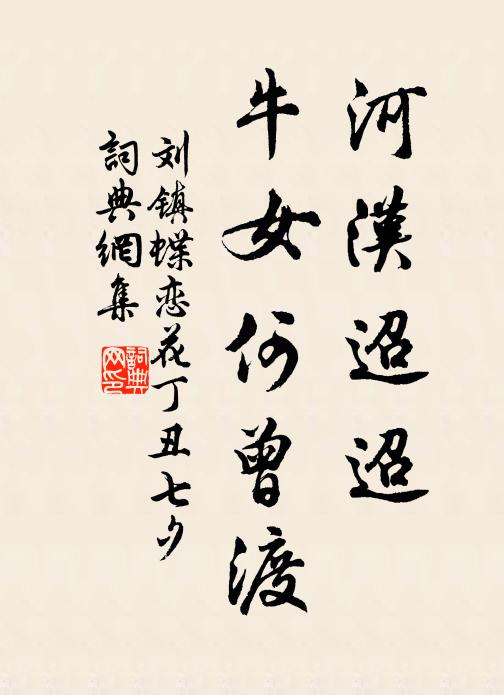 河漢迢迢
牛女何曾渡
刘镇蝶恋花丁丑七夕
詞典網集
詞典網印